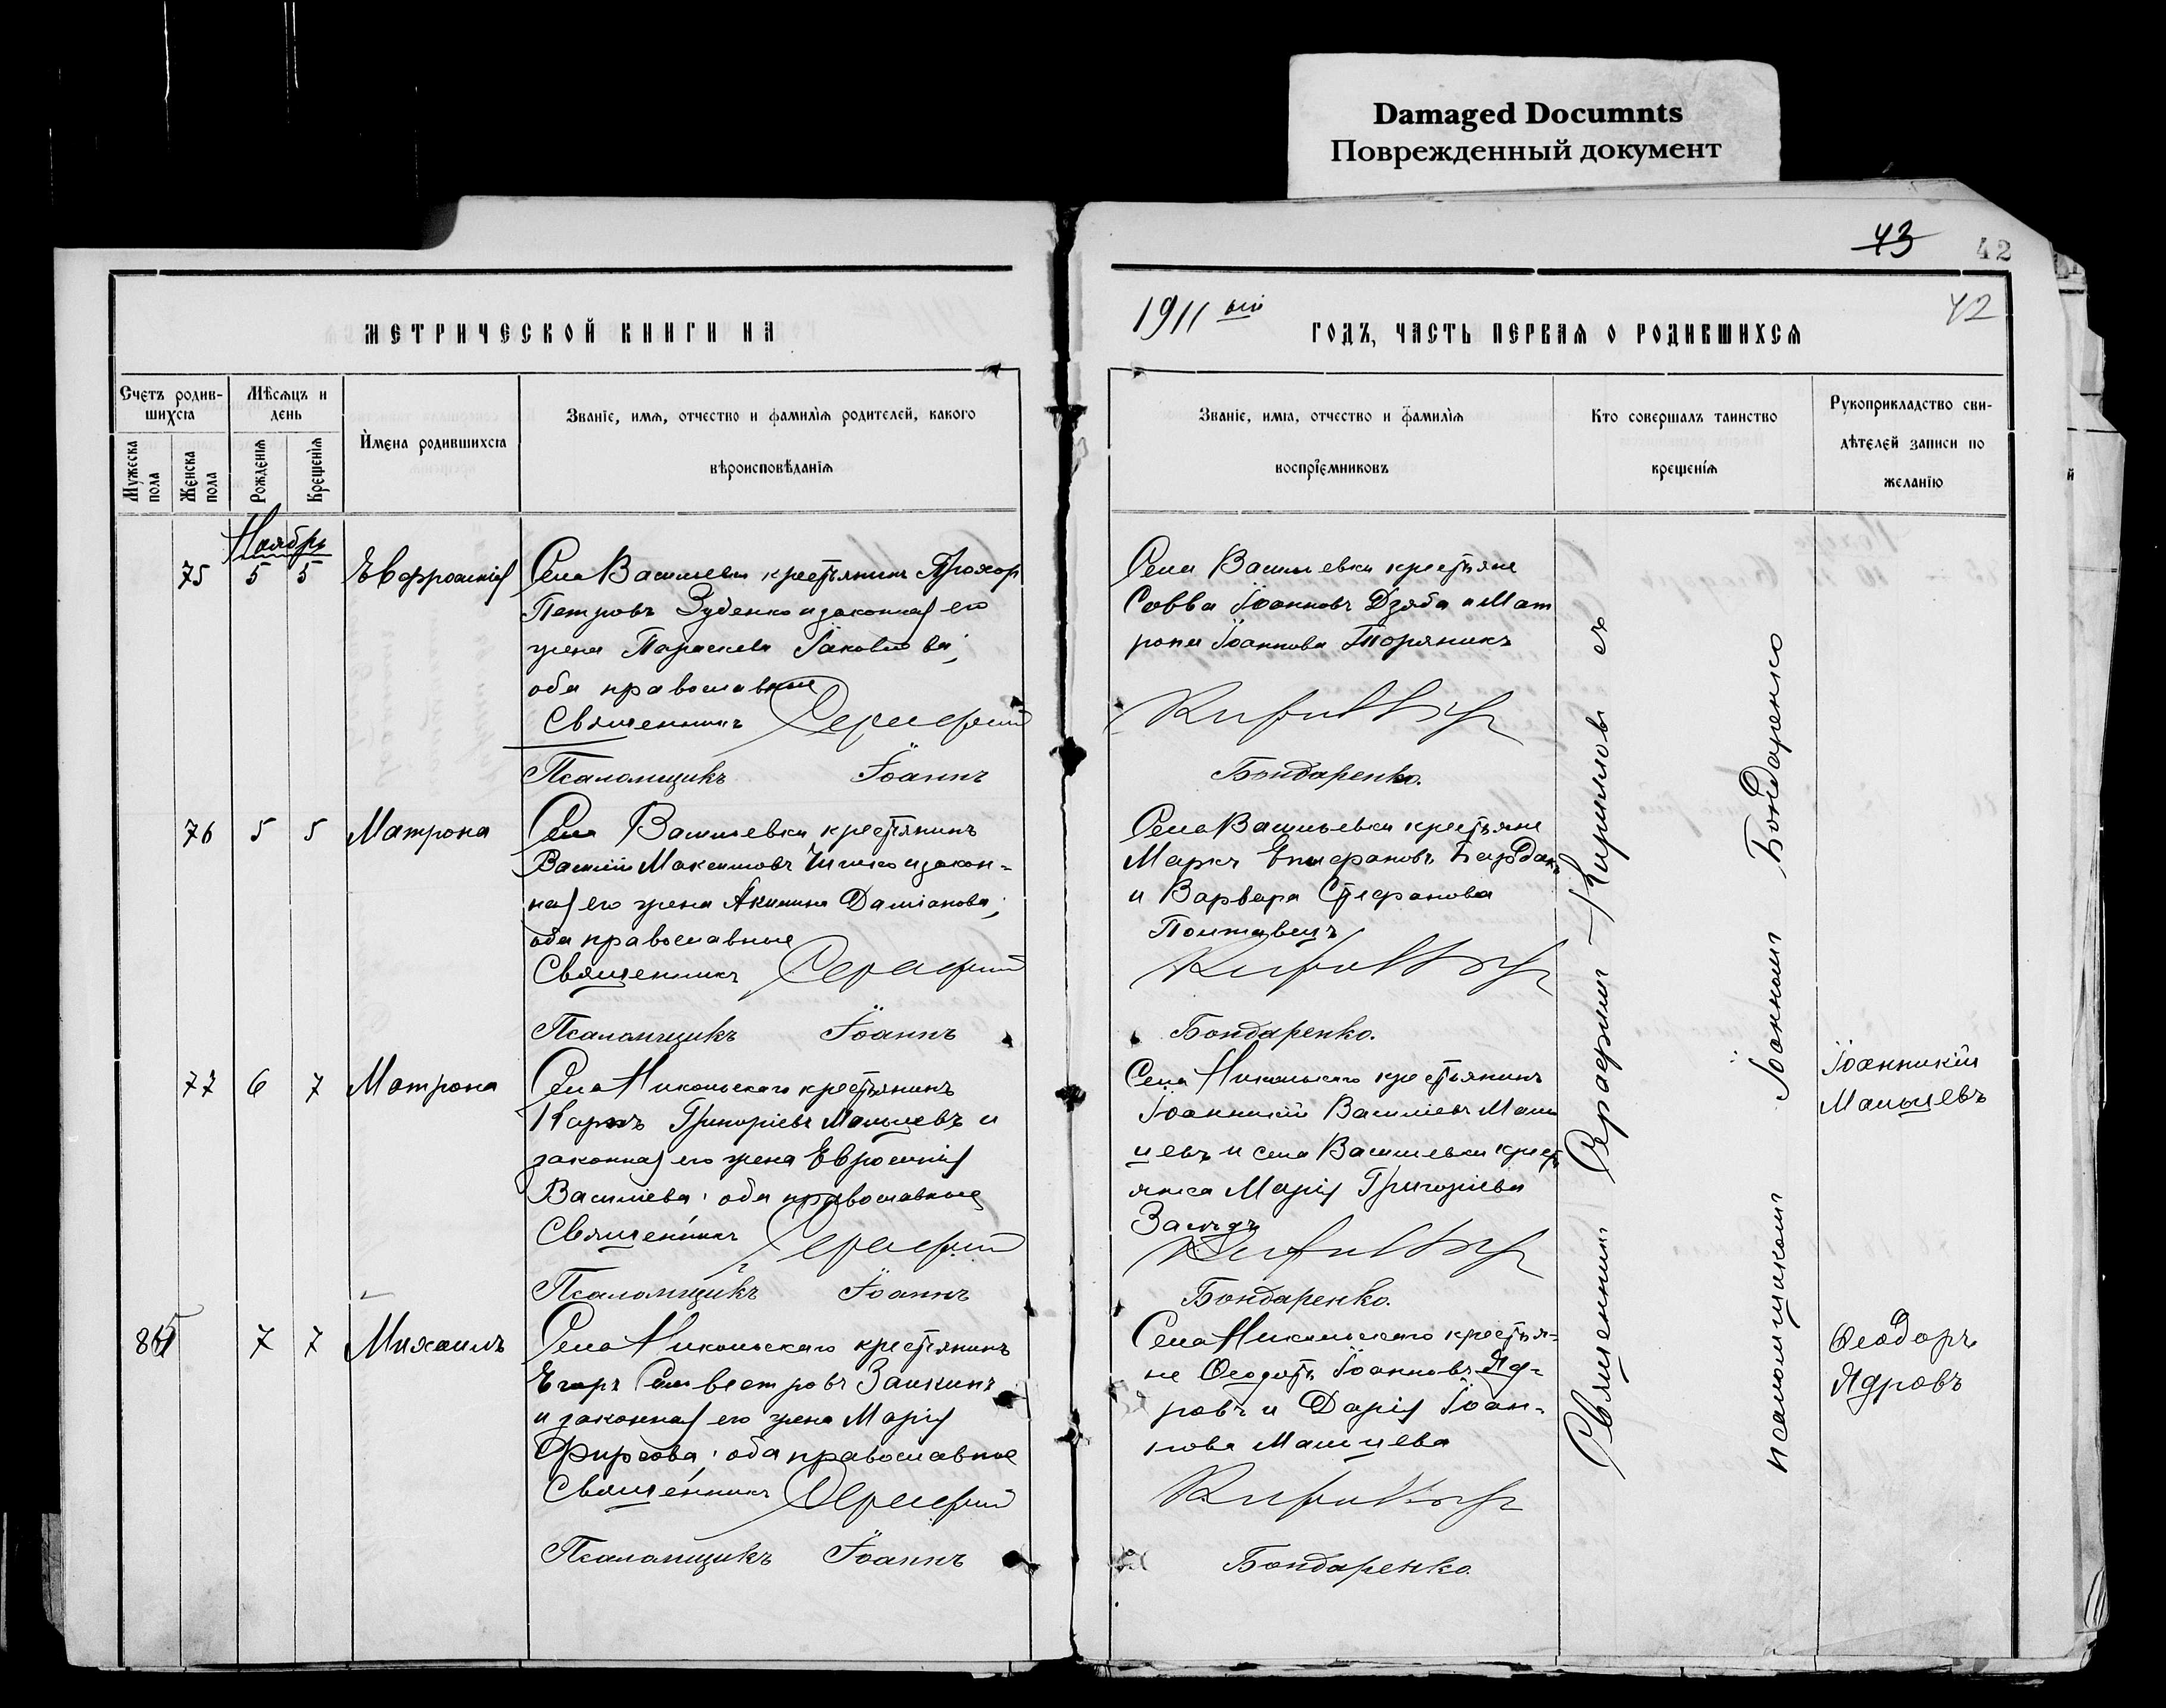 Damaged Documnts
Поврежденный документ
43
42
42
МЕТРИЧЕСКОЙ КНИГИ НА
1911 ый
ГОДЪ, ЧАСТЬ ПЕРВАЯ О РОДИВШИХСЯ
Счетъ родив-
шихся
Мужеска
пола
Женска
пола
Мѣсяцъ и
день
Рожденія
Крещенія
Имена родившихся
Званіе, имя, отчество и фамилія родителей, какого
вѣроисповѣданія
Званіе, имя, отчество и фамилія
воспріемниковъ
Кто совершалъ таинство
крещенія
Рукоприкладство сви-
дѣтелей записи по
желанію
Ноябрь
75 5 5 Евфросинія
Села Васильевки крестьянинъ Прохор
Петровъ Зубенко и законная его
жена Параскева Іаковлева;
оба православные
Священникъ Серафим
Псаломщикъ Іоаннъ
Села Васильевки крестьяне
Савва Іоанновъ Дзюба и Мат
рона Іоаннова Торяникъ
Кириллов
Бондаренко.
76 5 5 Матрона
Села Васильевки крестьянинъ
Василій Максимовъ и закон-
ная его жена Акилина Даміанова;
оба православные
Священникъ Серафим
Псаломщикъ Іоаннъ
Села Васильевки крестьяне
Маркъ Епифановъ
и Варвара Стефанова
Полтавецъ
Кириллов
Бондаренко.
77 6 7 Матрона
Села Никольскаго крестьянинъ
Карпъ Григоріевъ Мальцевъ и
законная его жена Евфросинія
Василіева; оба православные
Священникъ Серафим
Псаломщикъ Іоаннъ
Села Никольскаго крестьянинъ
Іоанникій Василіевъ Маль
цевъ и села Васильевки крест
янка Марія Григоріева
Кириллов
Бондаренко.
Іоанникій
Мальцевъ
7 7 Михаилъ
Села Никольскаго крестьянинъ
Егоръ Силвестровъ Заикинъ
и законная его жена Марія
Фирсова; оба православные
Священникъ Серафим
Псаломщикъ Іоаннъ
Села Никольскаго крестья-
не Ѳеодотъ Іоанновъ Яд-
ровъ и Дарія Іоан-
нова Мальцева
Кириллов
Бондаренко.
Ѳеодоръ
Ядровъ
Священникъ Серафим Кириллов съ
псаломщиком Іоанном Бондаренко